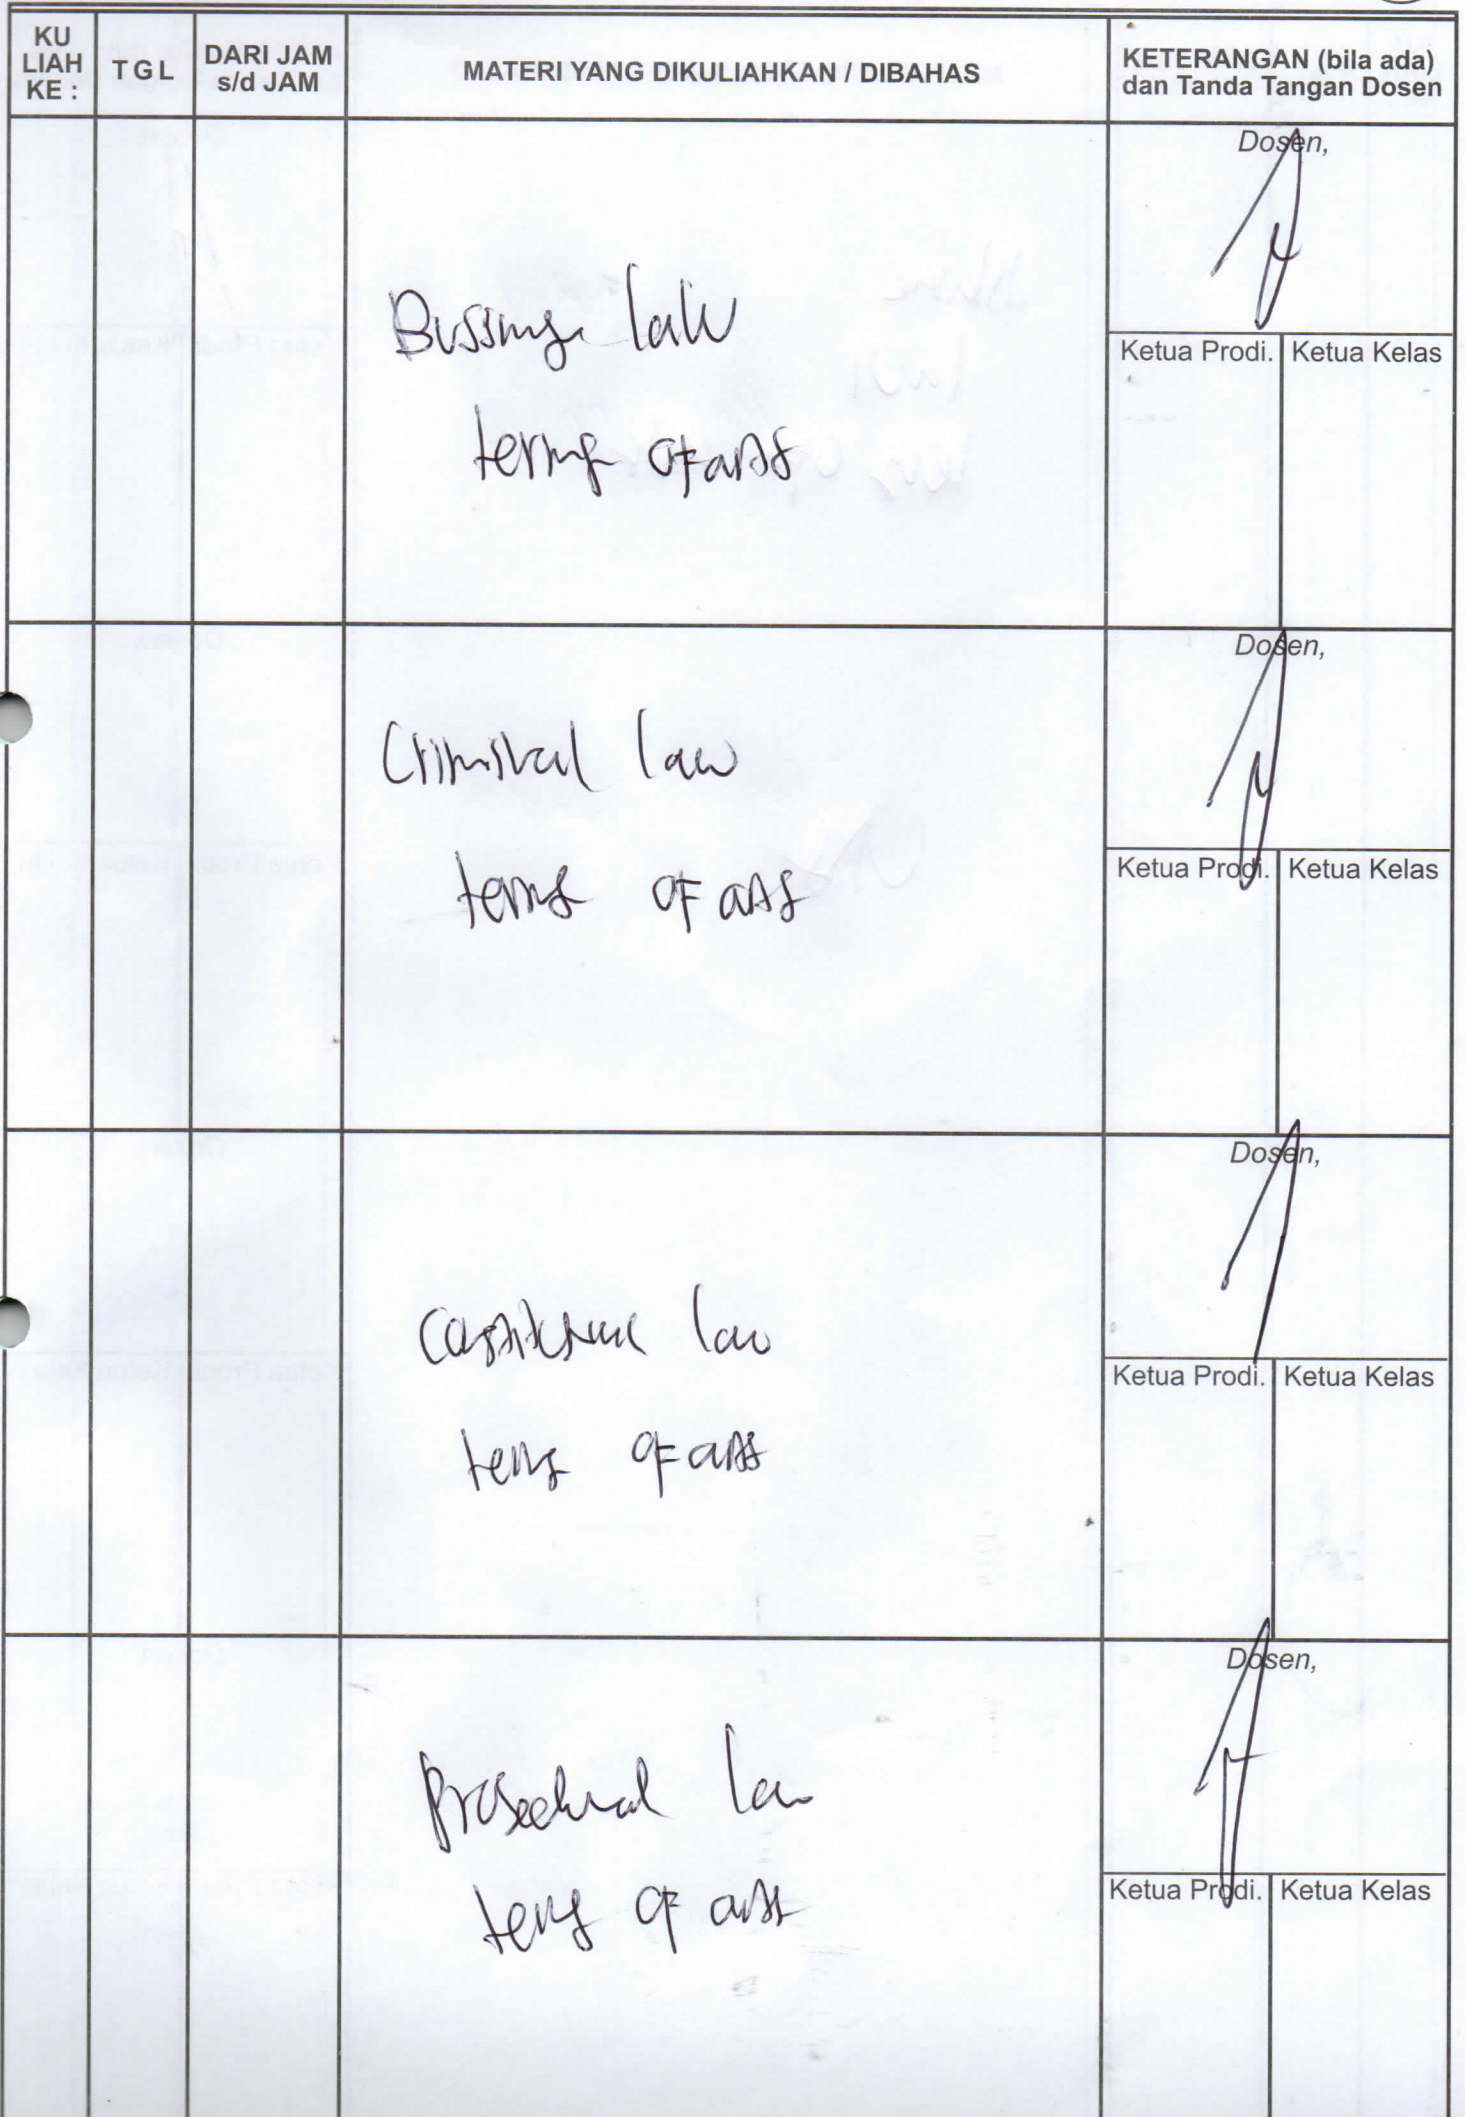 KU
LIAH
KE :
TGL
DARI JAM
s/d JAM
MATERI YANG DIKULIAHKAN / DIBAHAS
KETERANGAN (bila ada)
dan Tanda Tangan Dosen
law
terms of arts
Dosen,
Ketua Prodi.
Ketua Kelas
Criminal law
terms of arts
Dosen,
Ketua Prodi.
Ketua Kelas
law
terms of arts
Dosen,
Ketua Prodi.
Ketua Kelas
law
terms of arts
Dosen,
Ketua Prodi.
Ketua Kelas